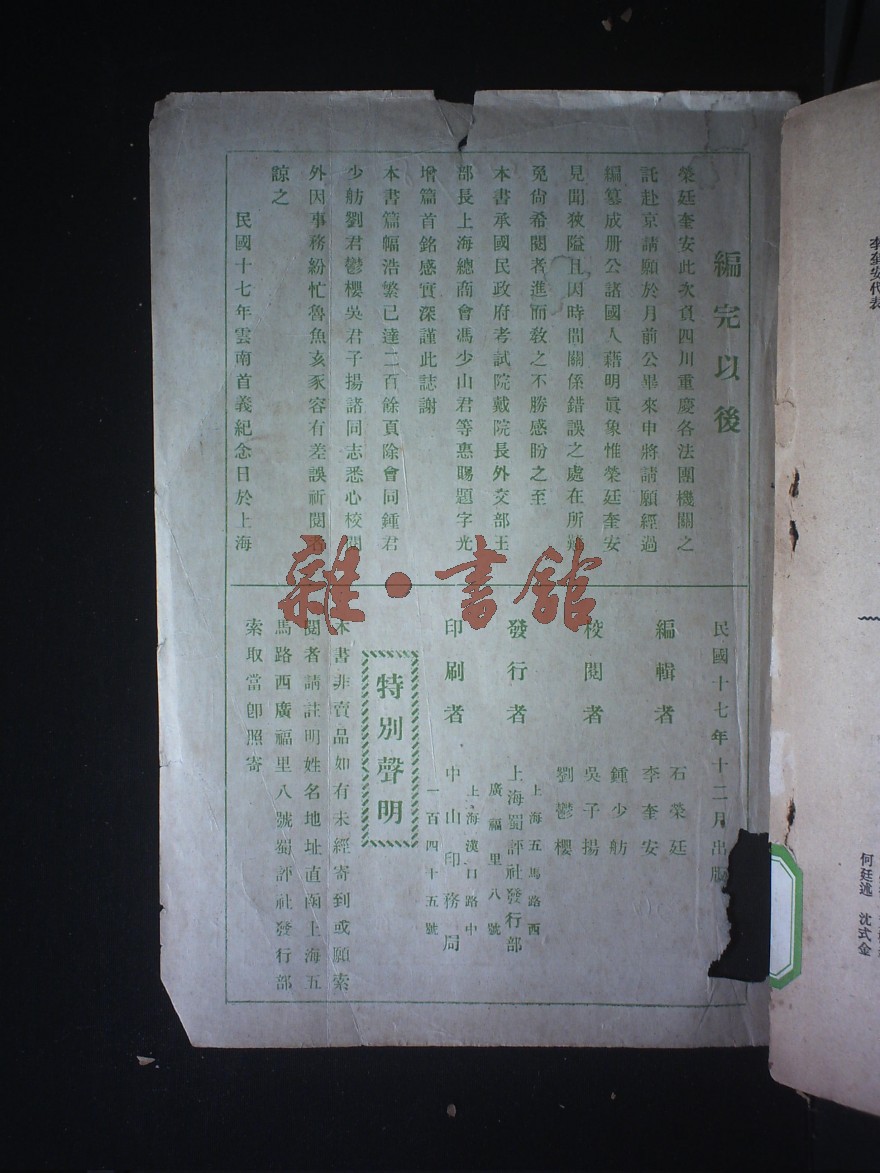 編完以後
榮廷奎安此次負四川重慶各法團機關之
託赴京請願於月前公畢來申將請願經過
編纂成册公諸國人藉明眞象惟榮廷奎安
見聞狹隘且因時間關係錯誤之處在所難
免尙希閱者進而敎之不勝感盼之至
本書承國民政府考試院戴院長外交部王
部長上海總商會馮少山君等惠賜題字光
增篇首銘感實深謹此誌謝
本書篇幅浩繁已達二百餘頁除會同鍾君
少舫劉君鬱櫻吳君子揚諸同志悉心校閱
外因事務紛忙魯魚亥豕容有差誤祈閱者
諒之
民國十七年雲南首義紀念日於上海
民國十七年十二月出版
編輯者
石榮廷
李奎安
校閱者
鍾少舫
吳子揚
劉鬱櫻
發行者
上海五馬路西
上海蜀評社發行部
廣福里八號
印刷者
上海漢口路中
中山印務局
一百四十五號
特別聲明
本書非賣品如有未經寄到或願索
閱者請註明姓名地址直函上海五
馬路西廣福里八號蜀評社發行部
索取當卽照寄
雜·書館
李奎安代表
何廷述 沈式金